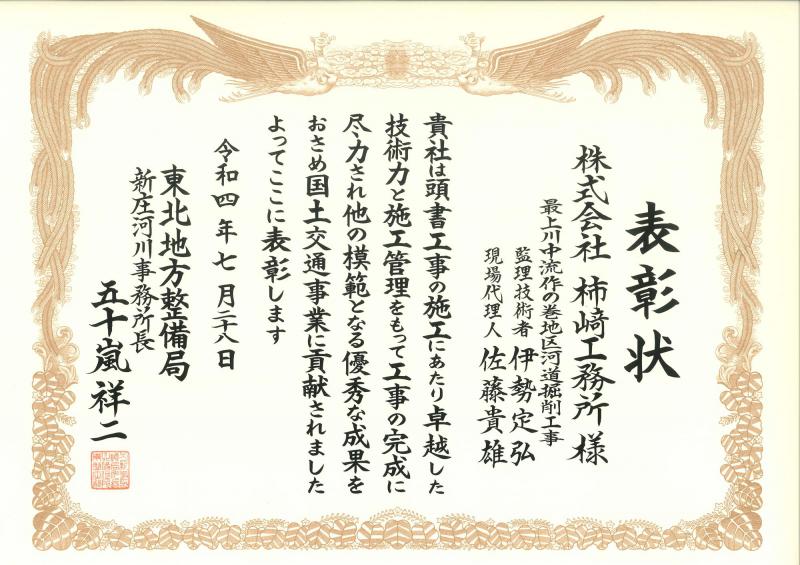 表彰状
株式会社 柿﨑工務所 様
最上川中流作の巻地区河道掘削工事
監理技術者 伊勢定弘
現場代理人 佐藤貴雄
貴社は頭書工事の施工にあたり卓越した
技術力と施工管理をもって工事の完成に
尽力され他の模範となる優秀な成果を
おさめ国土交通事業に貢献されました
よってここに表彰します
令和四年七月二十八日
東北地方整備局
新庄河川事務所長
五十嵐祥二